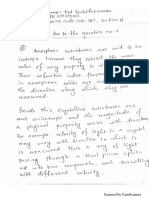 Name: Md
ID:
Course code:
Ans to the question no-1
@ Amorphous substances are said to be
isotropic because they exhibit the same
value of any property in all directions.
The refractive index, thermal
in amorphous solids are independent of
the direction along which they are
measured.
Beside this, Crystalline substances are
anisotropic and the magnitude of
a physical property varies with direction.
For example, velocity of light in a crystal
may vary with direction in which
it is measured. Thus, a ray of light
passing through a
into two components, each travelling
with different velocity.
Scanned by CamScanner